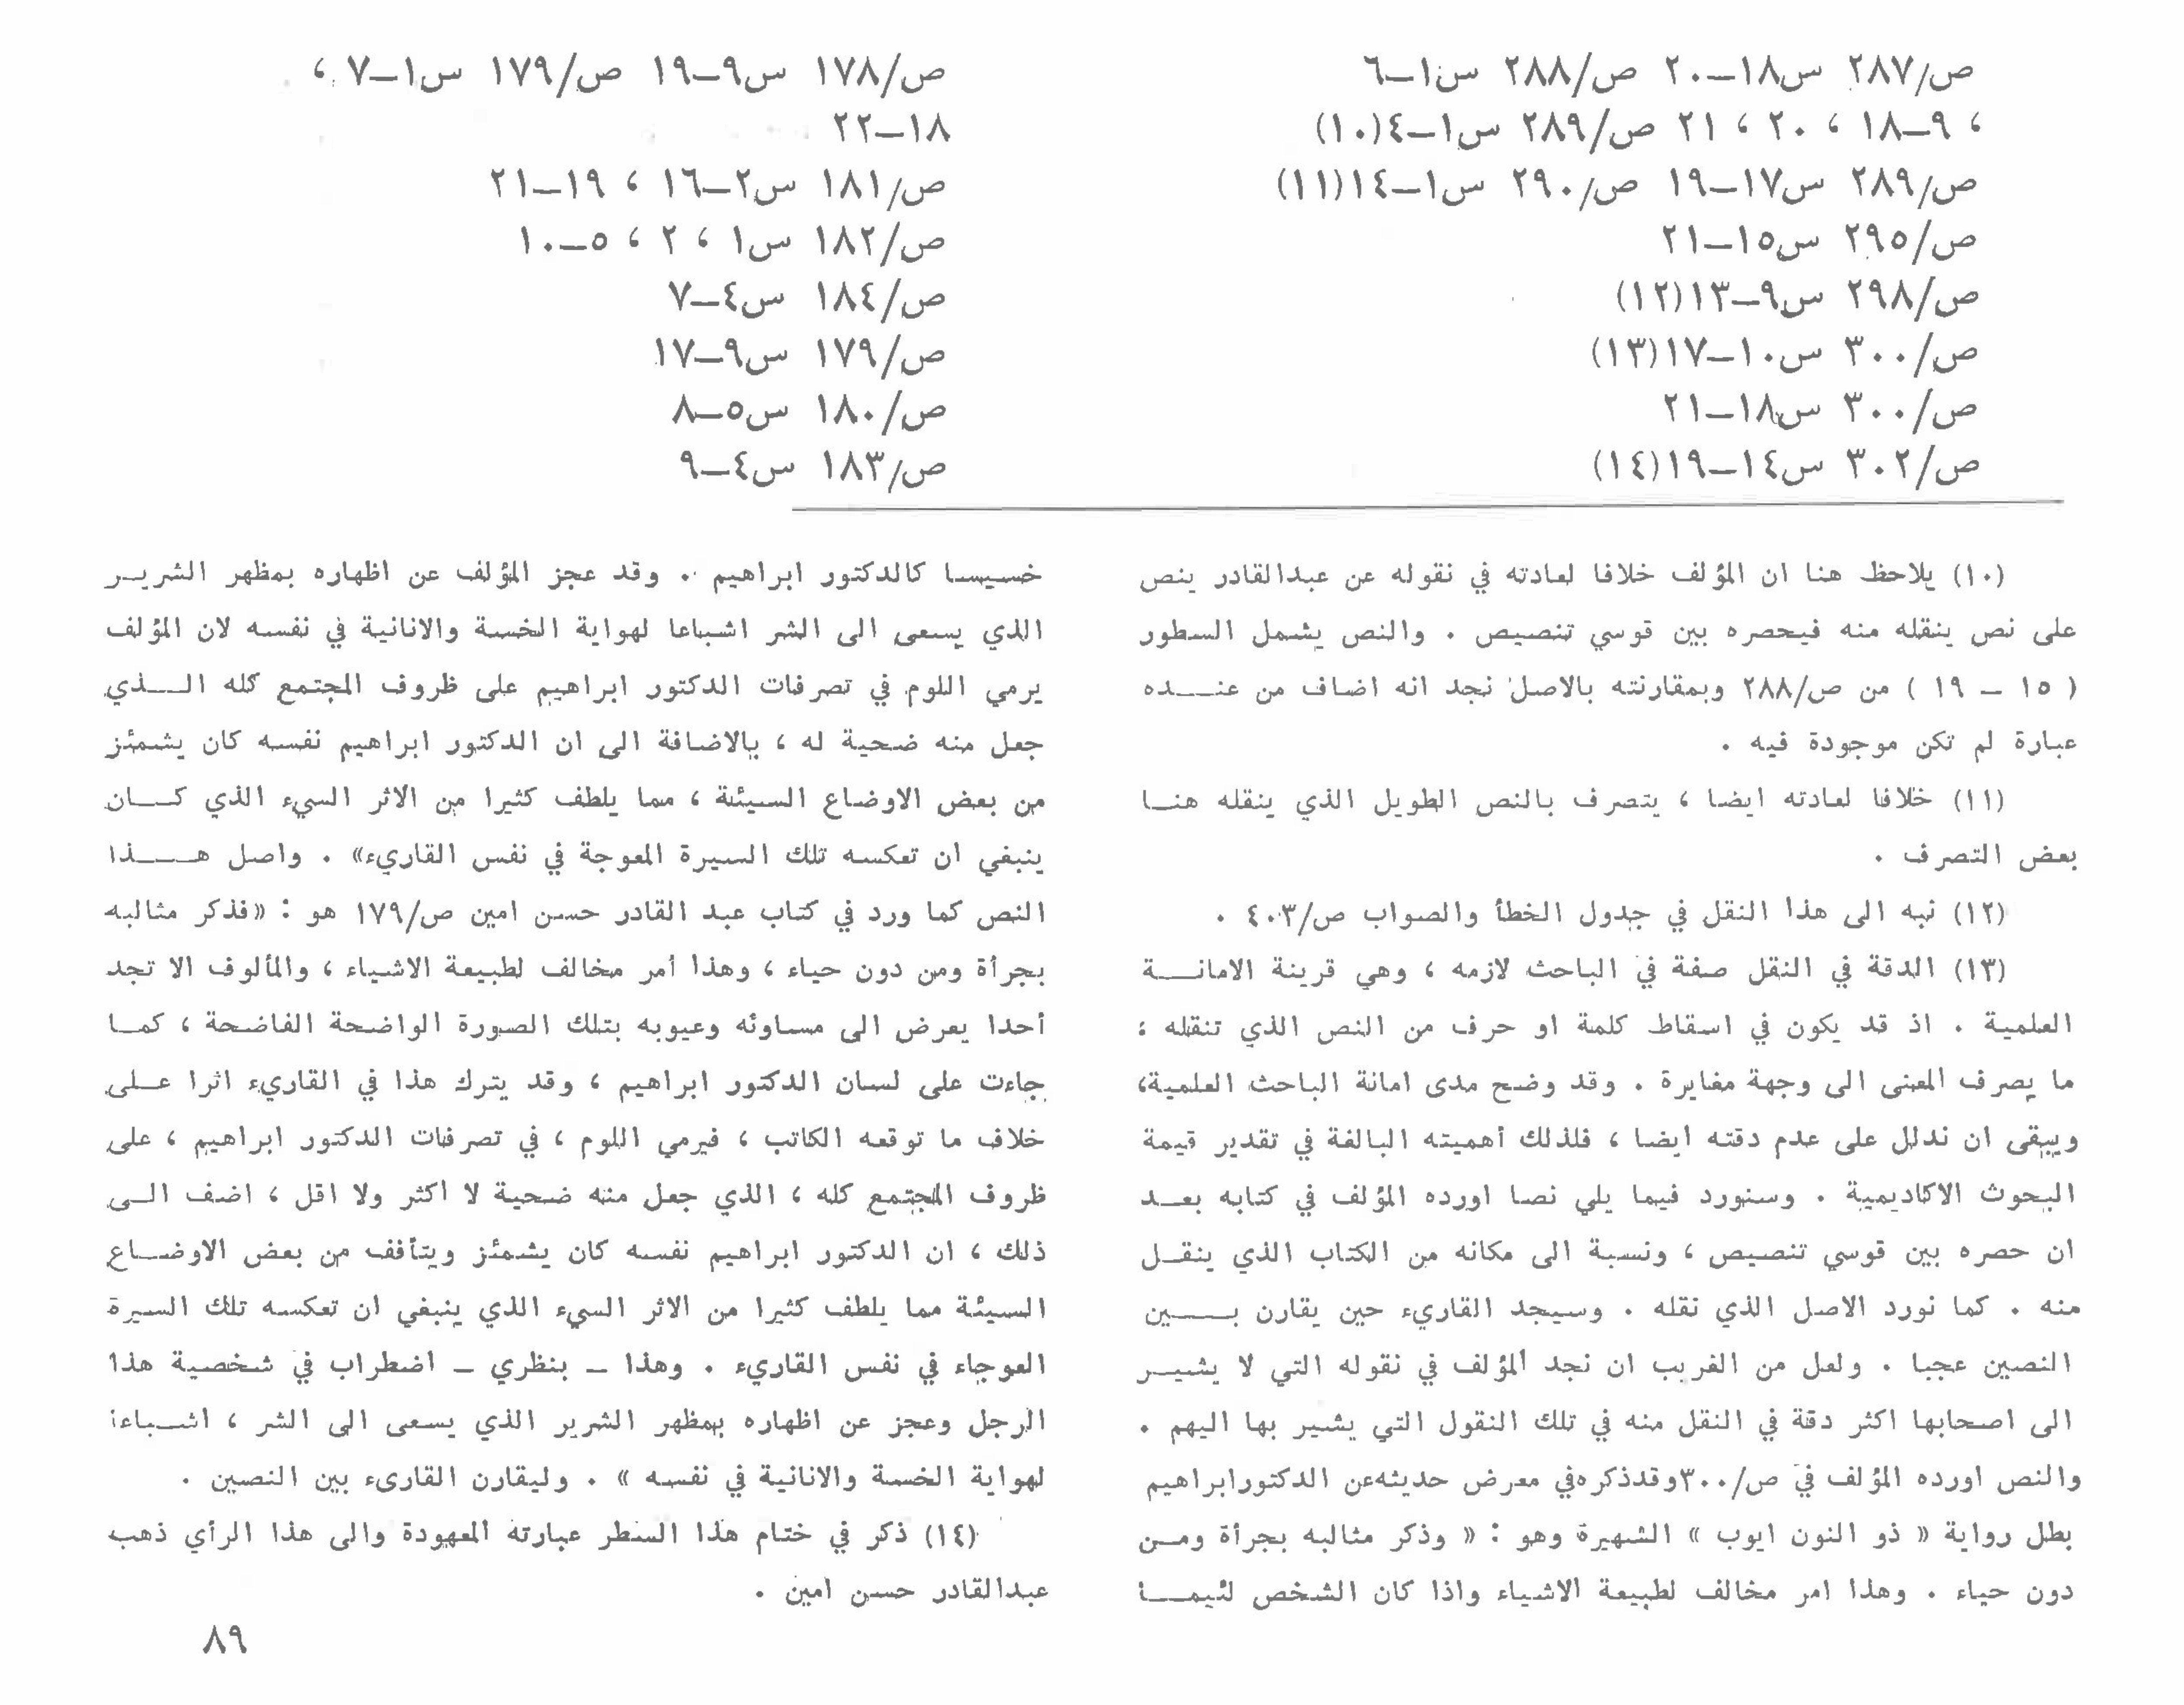 ص/٢٨٧ س١٨–٢٠ ص/٢٨٨ س١–٦
، ٩–١٨ ، ٢٠ ، ٢١ ص/٢٨٩ س١–٤(١٠)
ص/٢٨٩ س١٧–١٩ ص/٢٩٠ س١–١٤(١١)
ص/٢٩٥ س١٥–٢١
ص/٢٩٨ س٩–١٣(١٢)
ص/٣٠٠ س١٠–١٧(١٣)
ص/٣٠٠ س١٨–٢١
ص/٣٠٢ س١٤–١٩(١٤)
ص/١٧٨ س٩–١٩ ص/١٧٩ س١–٧ ،
١٨–٢٢
ص/١٨١ س٢–١٦ ، ١٩–٢١
ص/١٨٢ س١ ، ٢ ، ٥–١٠
ص/١٨٤ س٤–٧
ص/١٧٩ س٩–١٧
ص/١٨٠ س٥–٨
ص/١٨٣ س٤–٩
(١٠) يلاحظ هنا ان المؤلف خلافا لعادته في نقوله عن عبدالقادر ينص
على نص ينقله منه فيحصره بين قوسي تنصيص . والنص يشمل السطور
( ١٥ – ١٩ ) من ص/٢٨٨ وبمقارنته بالاصل نجد انه اضاف من عنـــده
عبارة لم تكن موجودة فيه .
(١١) خلافا لعادته ايضا ، يتصرف بالنص الطويل الذي ينقله هنــا
بعض التصرف .
(١٢) نبه الى هذا النقل في جدول الخطأ والصواب ص/٤٠٣ .
(١٣) الدقة في النقل صفة في الباحث لازمه ، وهي قرينة الامانـــة
العلمية . اذ قد يكون في اسقاط كلمة او حرف من النص الذي تنقله ؛
ما يصرف المعنى الى وجهة مغايرة . وقد وضح مدى امانة الباحث العلمية،
ويبقى ان ندلل على عدم دقته ايضا ، فلذلك أهميته البالغة في تقدير قيمة
البحوث الاكاديمية . وسنورد فيما يلي نصا اورده المؤلف في كتابه بعــد
ان حصره بين قوسي تنصيص ، ونسبة الى مكانه من الكتاب الذي ينقــل
منه . كما نورد الاصل الذي نقله . وسيجد القاريء حين يقارن بــــين
النصين عجبا . ولعل من الغريب ان نجد المؤلف في نقوله التي لا يشيــر
الى اصحابها اكثر دقة في النقل منه في تلك النقول التي يشير بها اليهم .
والنص اورده المؤلف في ص/٣٠٠وقدذكرهفي معرض حديثهعن الدكتورابراهيم
بطل رواية « ذو النون ايوب » الشهيرة وهو : « وذكر مثالبه بجرأة ومــن
دون حياء . وهذا امر مخالف لطبيعة الاشياء واذا كان الشخص لئيمـــا
خسيسا كالدكتور ابراهيم . وقد عجز المؤلف عن اظهاره بمظهر الشريــر
الذي يسعى الى الشر اشباعا لهواية الخسة والانانية في نفسه لان المؤلف
يرمي اللوم في تصرفات الدكتور ابراهيم على ظروف المجتمع كله الـــذي
جعل منه ضحية له ، بالاضافة الى ان الدكتور ابراهيم نفسه كان يشمئز
من بعض الاوضاع السيئة ، مما يلطف كثيرا من الاثر السيء الذي كـــان
ينبغي ان تعكسه تلك السيرة المعوجة في نفس القاريء» . واصل هــــذا
النص كما ورد في كتاب عبد القادر حسن امين ص/١٧٩ هو : «فذكر مثالبه
بجرأة ومن دون حياء ، وهذا أمر مخالف لطبيعة الاشياء ، والمألوف الا تجد
أحدا يعرض الى مساوئه وعيوبه بتلك الصورة الواضحة الفاضحة ، كمــا
جاءت على لسان الدكتور ابراهيم ، وقد يترك هذا في القاريء اثرا عــلى
خلاف ما توقعه الكاتب ، فيرمي اللوم ، في تصرفات الدكتور ابراهيم ، على
ظروف المجتمع كله ، الذي جعل منه ضحية لا اكثر ولا اقل ، اضف الــى
ذلك ، ان الدكتور ابراهيم نفسه كان يشمئز ويتأفف من بعض الاوضــاع
السيئة مما يلطف كثيرا من الاثر السيء الذي ينبغي ان تعكسه تلك السيرة
العوجاء في نفس القاريء . وهذا – بنظري – اضطراب في شخصية هذا
الرجل وعجز عن اظهاره بمظهر الشرير الذي يسعى الى الشر ، اشــباعا
لهواية الخسة والانانية في نفسه » . وليقارن القارىء بين النصين .
(١٤) ذكر في ختام هذا السطر عبارته المعهودة والى هذا الرأي ذهب
عبدالقادر حسن امين .
٨٩